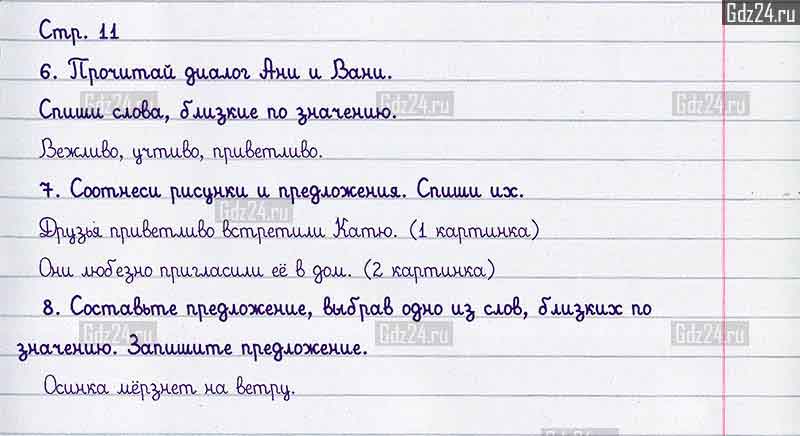 Gdz24.ru
Стр. 11
6. Прочитай диалог Ани и Вани.
Gdz24.ru Gdz24.ru Gdz24.ru
Спиши слова, близкие по значению.
Вежливо, учтиво, приветливо.
7. Соотнеси рисунки и предложения. Спиши их.
Gdz24.ru
Друзья приветливо встретили Катю. (1 картинка)
Они любезно пригласили её в дом. (2 картинка)
8. Составьте предложение, выбрав одно из слов, близких по
Gdz24.ru Gdz24.ru Gdz24.ru
значению. Запишите предложение.
Осинка мёрзнет на ветру.